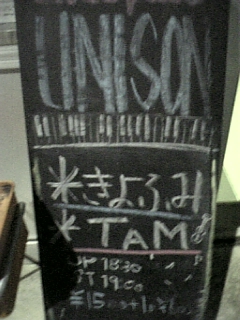 UNISON
*きよふみ
*TAM
OP 18:30
ST 19:00